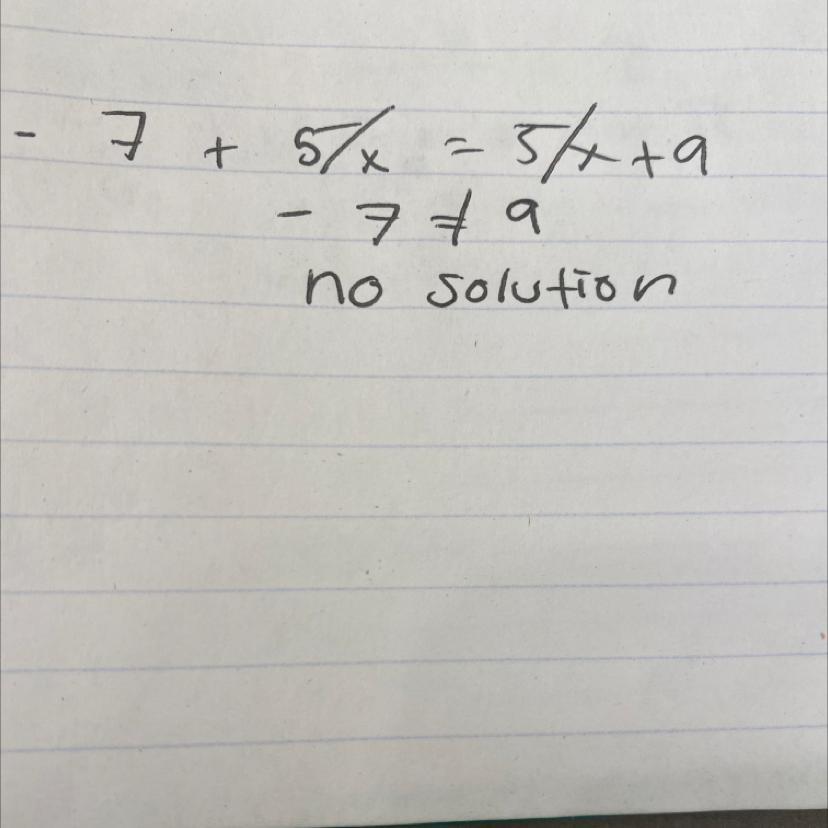 - 7 + 5/x = 5/x + 9
- 7 ≠ 9
no solution